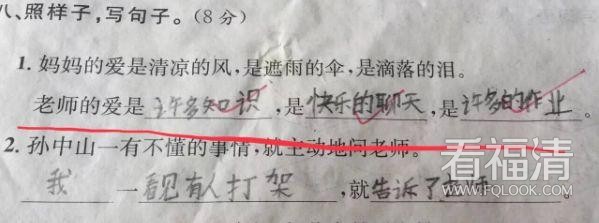 八、照样子,写句子。(8分)
1. 妈妈的爱是清凉的风,是遮雨的伞,是滴落的泪。
老师的爱是许多知识,是快乐的聊天,是许多的作业。
2. 孙中山一有不懂的事情,就主动地问老师。
我一看见有人打架,就告诉了老师。
看福清
WWW.FQLOOK.COM